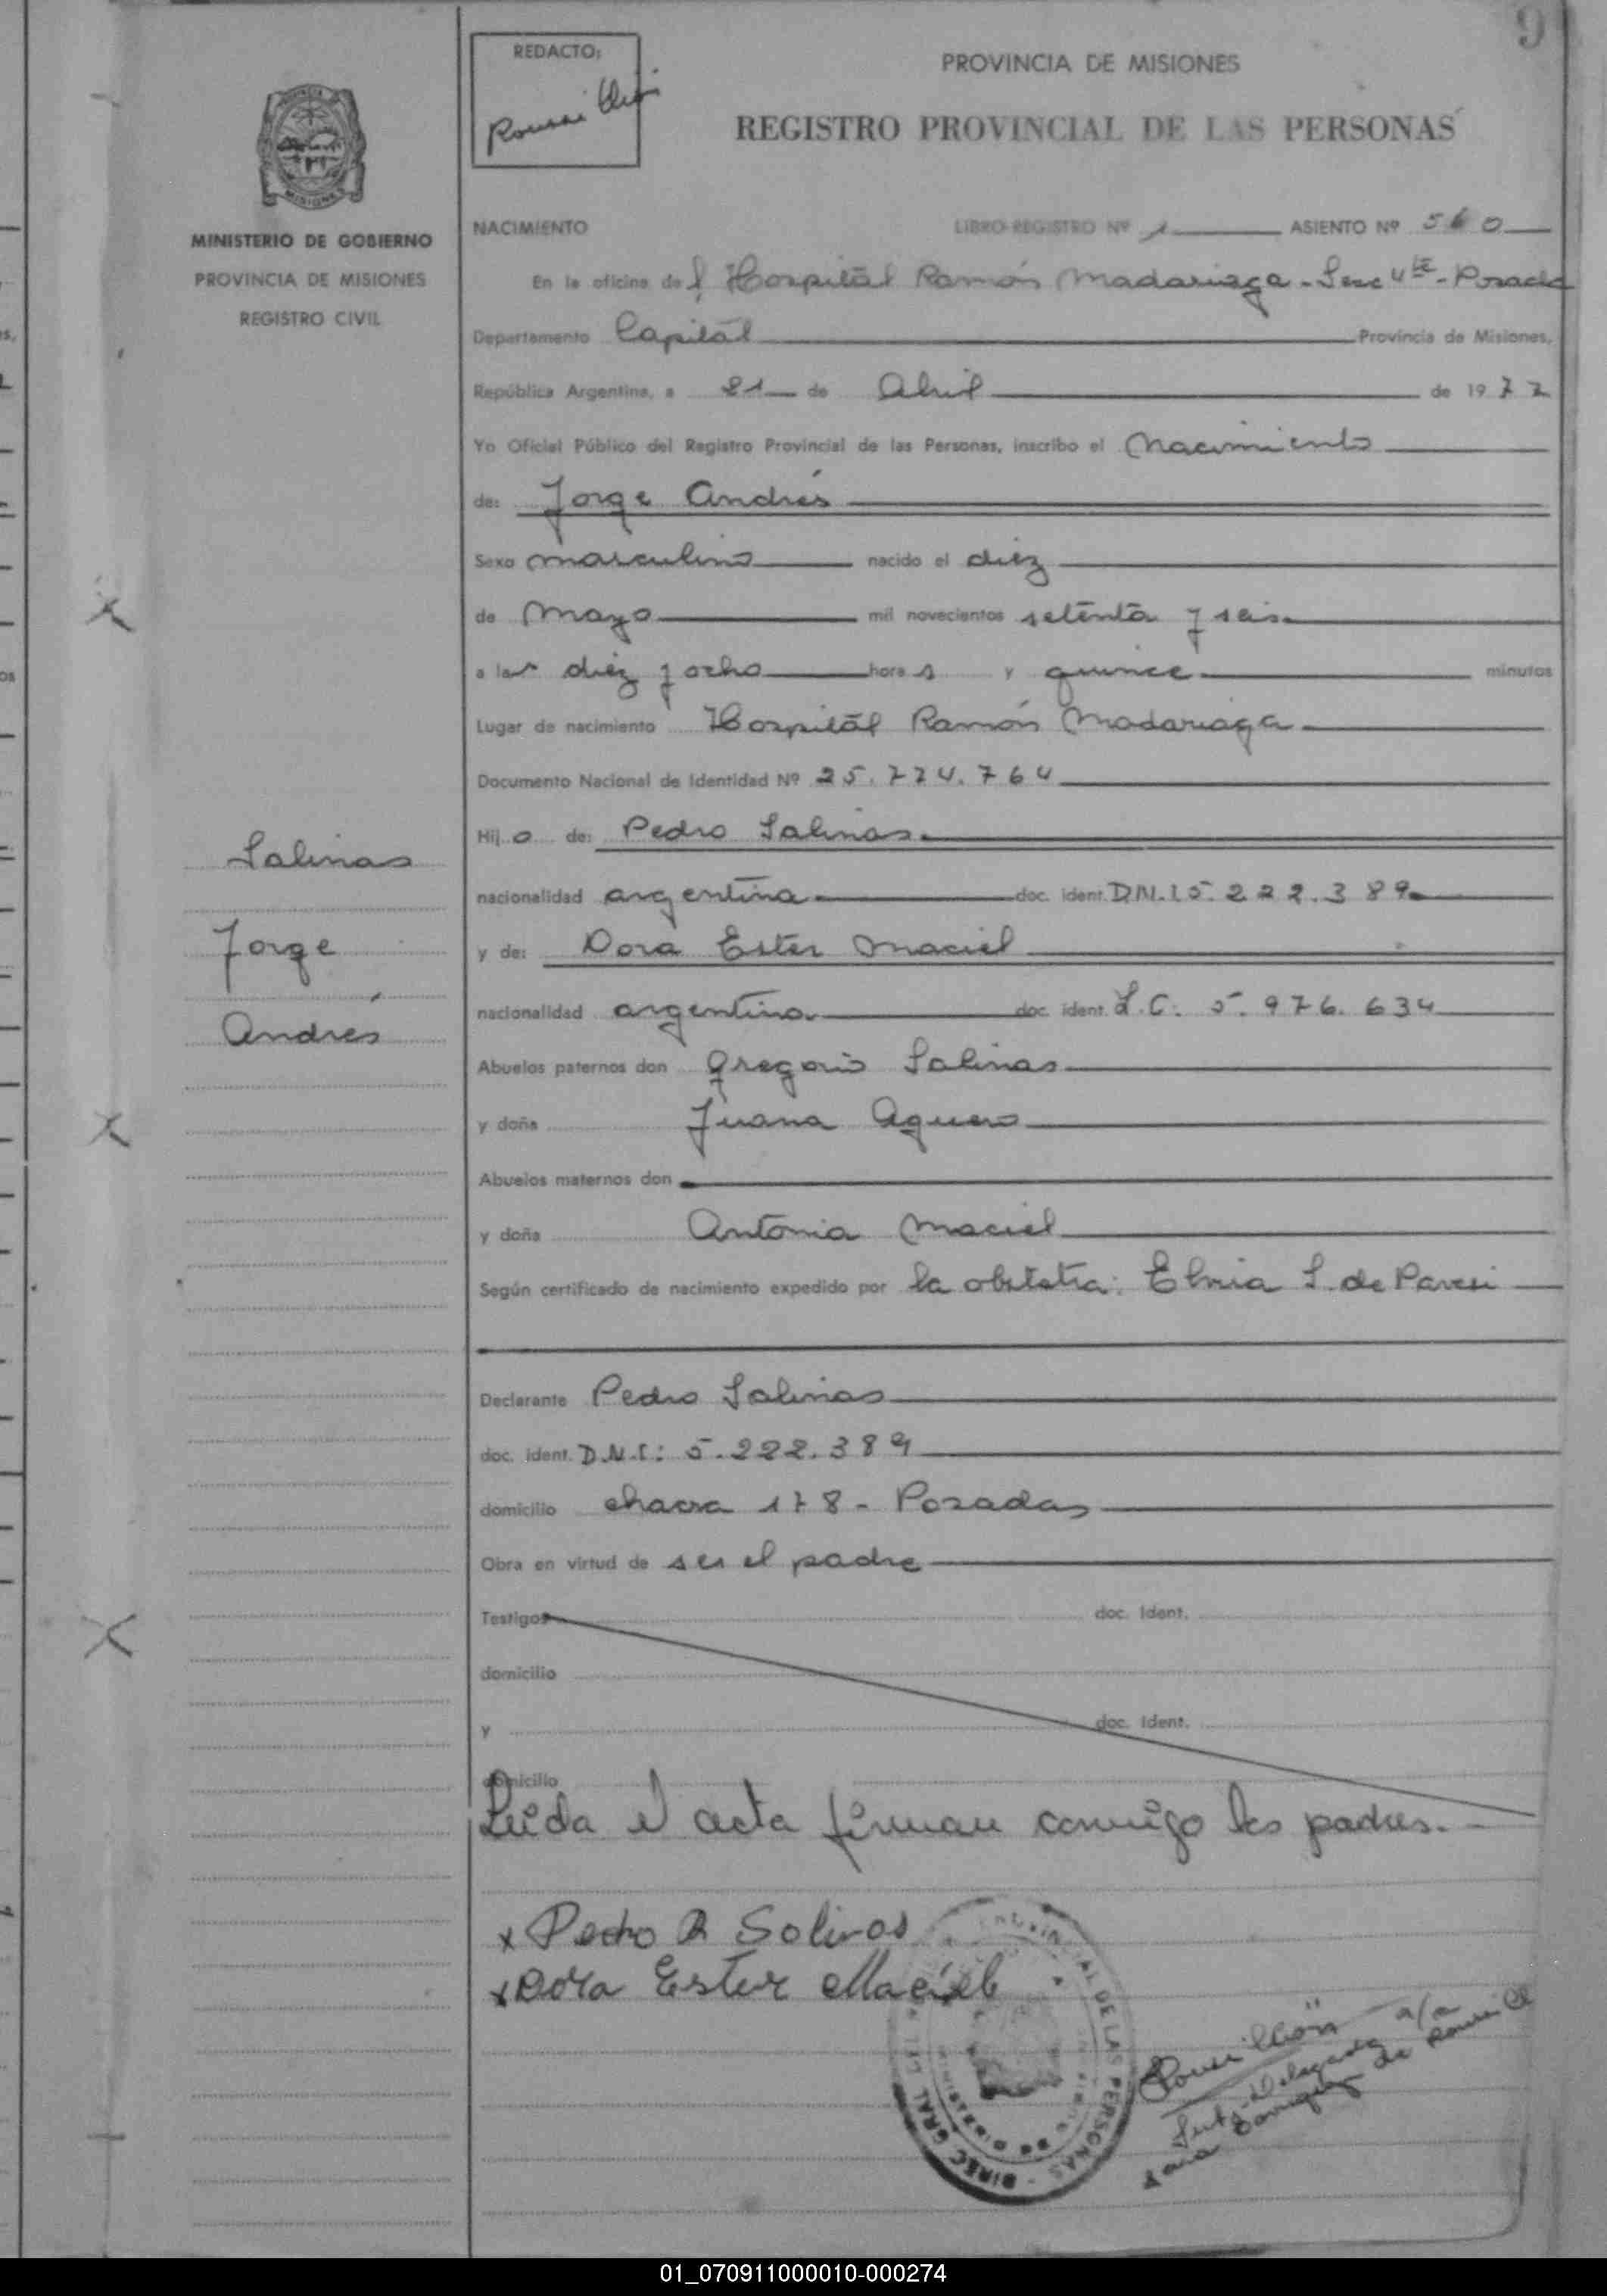 9
REDACTO:
PROVINCIA DE MISIONES
REGISTRO PROVINCIAL DE LAS PERSONAS
MINISTERIO DE GOBIERNO
PROVINCIA DE MISIONES
REGISTRO CIVIL
NACIMIENTO LIBRO-REGISTRO Nº 1 ASIENTO Nº 560
En la oficina del Hospital Ramón Madariaga - Secc 4ta - Posadas
Departamento Capital Provincia de Misiones,
República Argentina, a 21 de Abril de 1977
Yo Oficial Público del Registro Provincial de las Personas, inscribo el Nacimiento
de: Jorge Andrés
Sexo masculino nacido el diez
de Mayo mil novecientos setenta y seis
a las diez y ocho horas y quince minutos
Lugar de nacimiento Hospital Ramón Madariaga
Documento Nacional de Identidad Nº 25.724.764
Hijo de: Pedro Salinas
nacionalidad argentina doc. ident. D.N.I 5.222.389
y de: Dora Ester Maciel
nacionalidad argentina doc. ident. L.C. 5.976.634
Abuelos paternos don Gregorio Salinas
y doña Juana Aguero
Abuelos maternos don
y doña Antonia Maciel
Según certificado de nacimiento expedido por la obstetra: Elvia S. de
Declarante Pedro Salinas
doc. ident. D.N.I: 5.222.389
domicilio chacra 178 - Posadas
Obra en virtud de ser el padre
Testigos doc. Ident.
domicilio
y doc. Ident.
domicilio
Leida el acta firman conmigo los padres.-
x Pedro R Salinas
x Dora Ester Maciel
Salinas
Jorge
Andrés
DE LAS PERSONAS - DIREC. GRAL
01_070911000010-000274